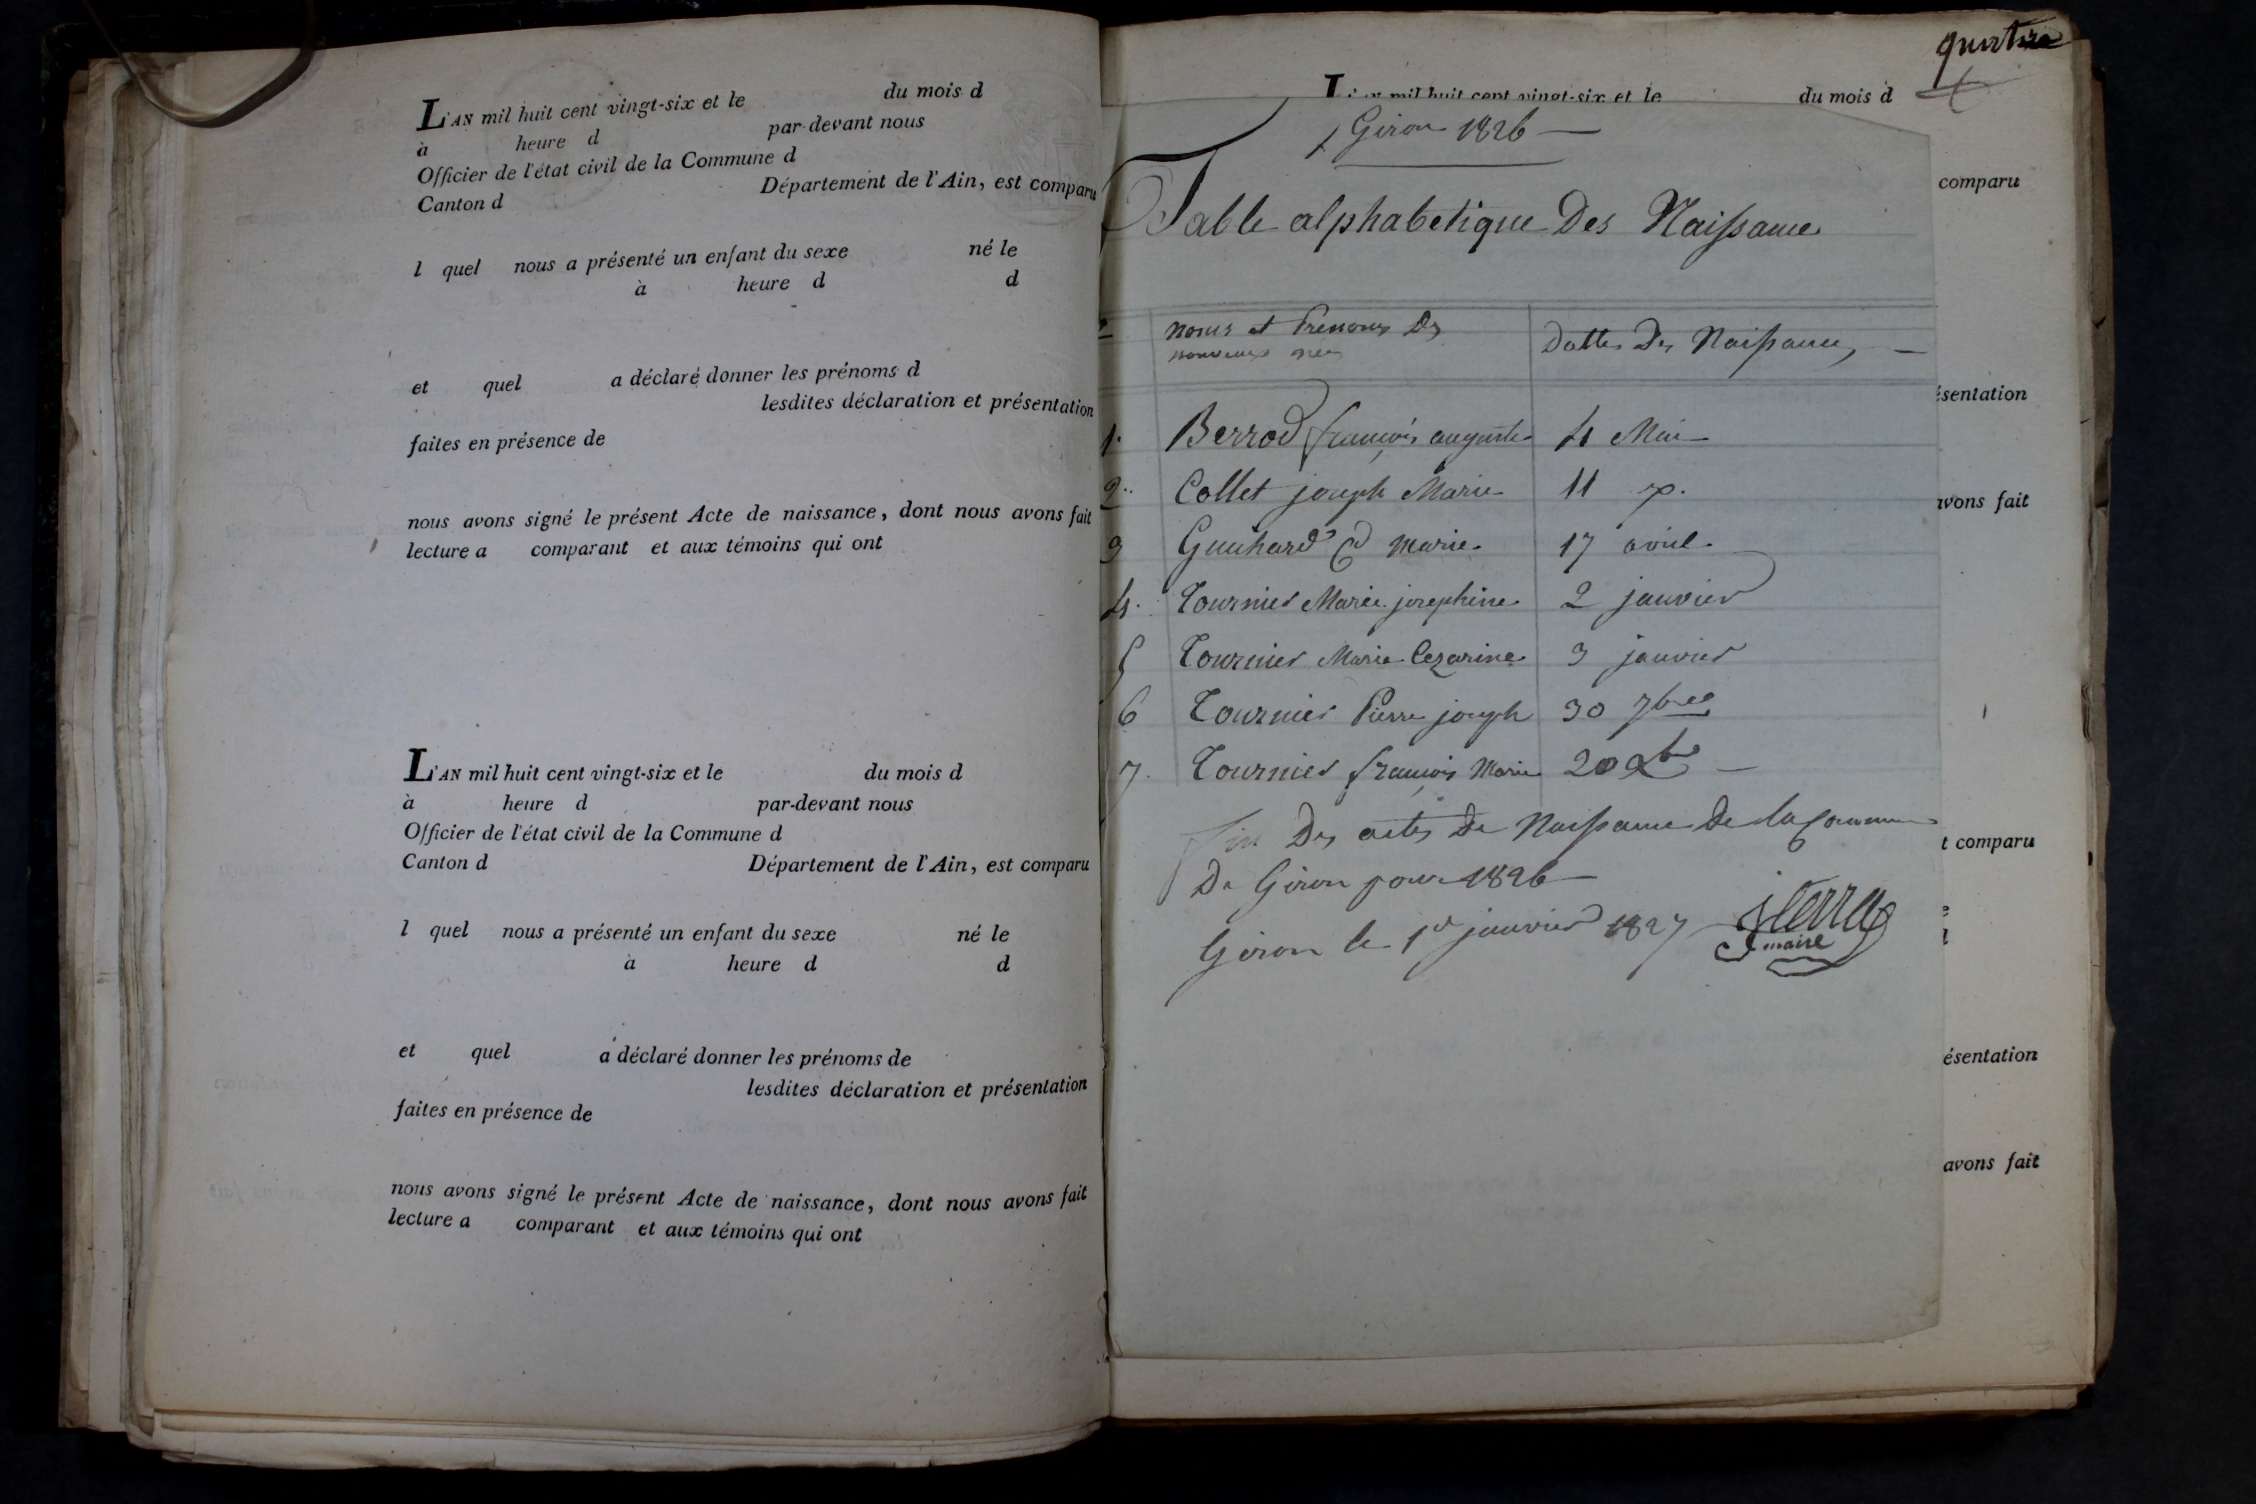 L'AN mil huit cent vingt-six et le du mois d
à heure d par-devant nous
Officier de l'état civil de la Commune d
Canton d Département de l'Ain, est comparu
l quel nous a présenté un enfant du sexe né le
à heure d d
et quel a déclaré donner les prénoms d
lesdites déclaration et présentation
faites en présence de
nous avons signé le présent Acte de naissance, dont nous avons fait
lecture a comparant et aux témoins qui ont
L'AN mil huit cent vingt-six et le du mois d
à heure d par-devant nous
Officier de l'état civil de la Commune d
Canton d Département de l'Ain, est comparu
l quel nous a présenté un enfant du sexe né le
à heure d d
et quel a déclaré donner les prénoms de
lesdites déclaration et présentation
faites en présence de
nous avons signé le présent Acte de naissance, dont nous avons fait
lecture a comparant et aux témoins qui ont
L'AN mil huit cent vingt-six et le du mois d
Giron 1826
comparu
Table alphabetique Des Naissances
noms et Prenoms Des
nouveaux nés
Dattes Des Naissances
ésentation
1. Berrod françois auguste 4 Mai
2.. Collet joseph Marie 11
avons fait
3 Marie 17 avril
4. Tournier Marie josephine 2 janvier
5 Tournier Marie Cezarine 3 janvier
6 Tournier Pierre joseph 30 7bre
7. Tournier françois Marie 20
fin Des actes De Naissance De la Commune
t comparu
De Giron pour 1826
Giron le 1er janvier 1827
maire
ésentation
avons fait